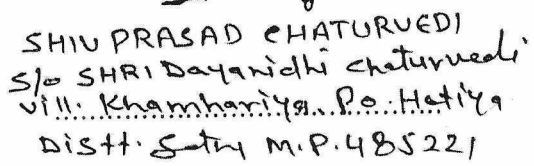 SHIV PRASAD CHATURVEDI
S/o SHRI Dayanidhi Chaturvedi
Vill. Khamhariya. Po. Hatiya
Distt. Satna M.P. 485221